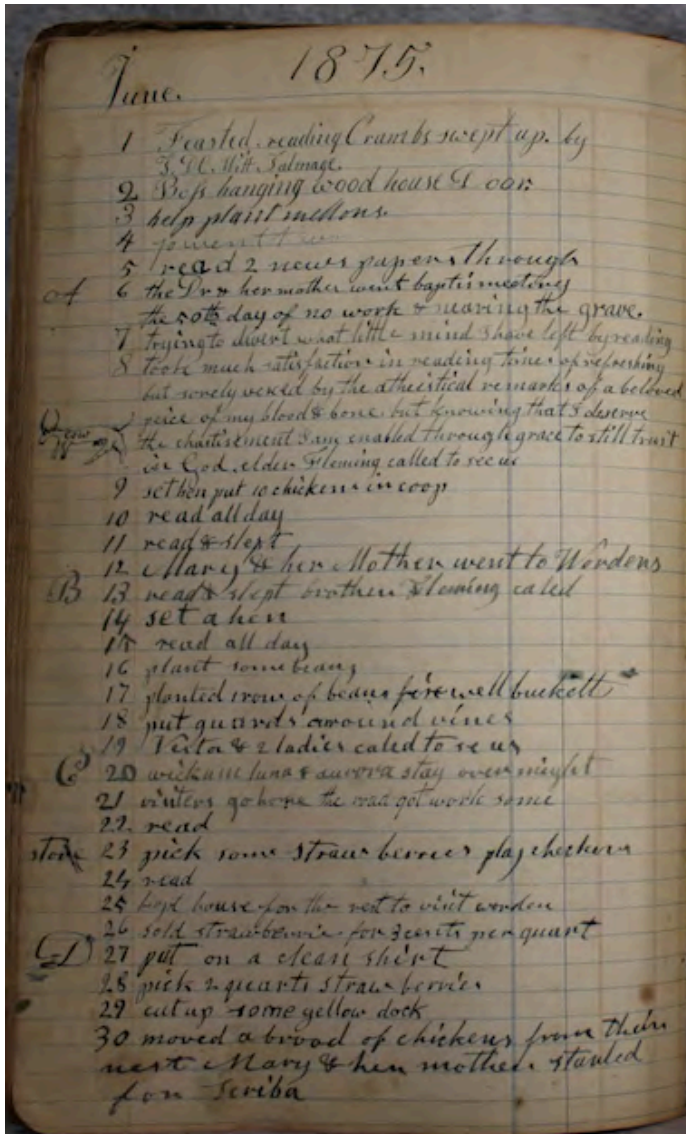 1875.
June.
1 Feasted reading Crumbs swept up. by
T. De Witt Talmage.
2 Boss hanging wood house Door
3 help plant mellons.
4
5 read 2 news papers through
A 6 the Dr & her mother went baptis meeting
the 50th day of no work & nearing the grave.
7 trying to divert what little mind I have left by reading
8 tooke much satisfaction in reading times of refreshing
but sorely vexed by the atheistical remarks of a beloved
peice of my blood & bone but knowing that I deserve
the chastisement I am enabled through grace to still trust
in God. elder Fleming called to see us
9 set hen put 10 chickens in coop
10 read all day
11 read & slept
12 Mary & her Mother went to Wordens
B 13 read & slept brother Fleming caled
14 set a hen
15 read all day
16 plant some beans
17 planted 1 row of beans well buckett
18 put guards around vines
19 & 2 ladies caled to se us
C 20 wickam luna & aurora stay over night
21 visiters go home the road got work some
22 read
23 pick some straw berries play checkers
24 read
25 kept house for the rest to visit worden
26 sold strawberrie for 3 cents per quart
D 27 put on a clean shirt
28 pick 2 quarts straw berries
29 cut up some yellow dock
30 moved a brood of chickens from their
nest Mary & her mother started
for Scriba